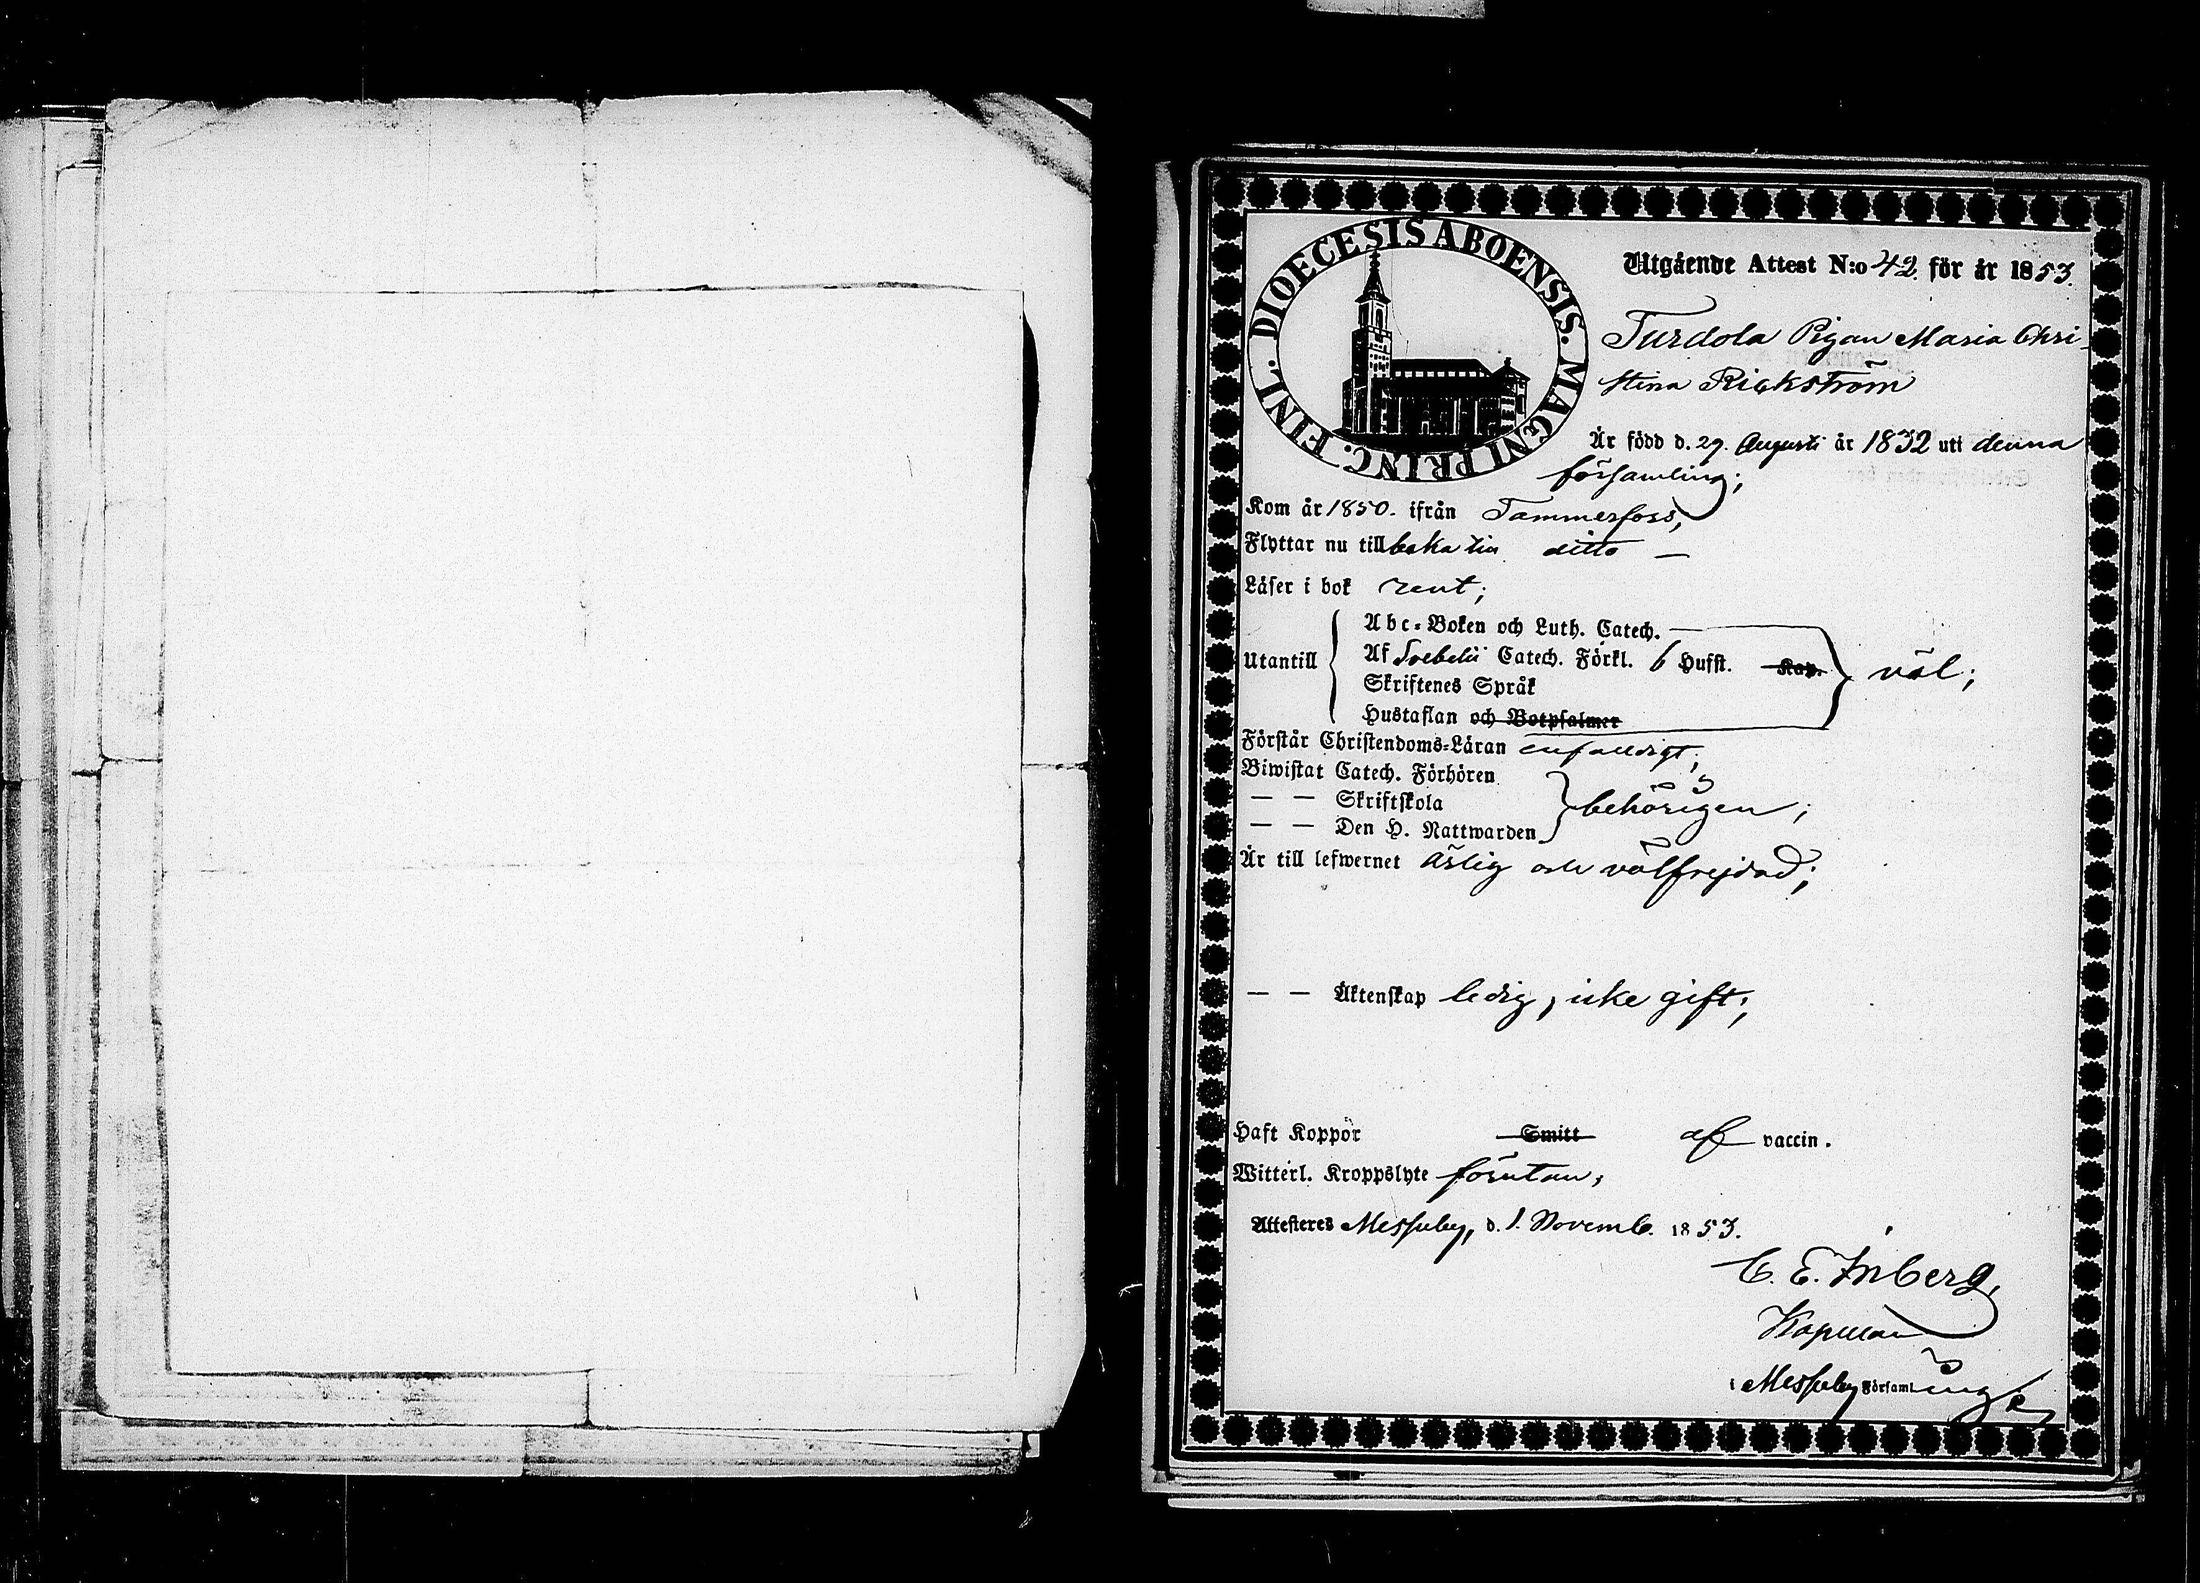 DIOECESIS ABOENSIS. MAGNI PRINC. FINL.
Utgående Attest N:o 42. för år 1853.
Turdola Pigan Maria Chri-
stina Rickström
Är född d. 29. Augusti år 1832 uti denna
församling;
Kom år 1850. ifrån Tammerfors,
Flyttar nu tillbaka till ditto —
Läser i bok rent;
Utantill
Abc-Boken och Luth. Catech.
Af Svebelii Catech. Förkl. 6 Hufst. Kap.
väl;
Skriftenes Språk
Hustaflan och Botpsalmer
Förstår Christendoms-Läran enfaldigt;
Biwistat Catech. Förhören
— — Skriftskola
behörigen;
— — Den H. Nattwarden
Är till lefwernet ärlig och välfrejdad;
— — Äktenskap ledig, icke gift;
Haft Koppor Smitt af vaccin.
Witterl. Kroppslyte förutan;
Attesteras Messuby, d. 1. Novemb. 1853.
C. E. Inberg,
Kapellan
i Messuby Församling